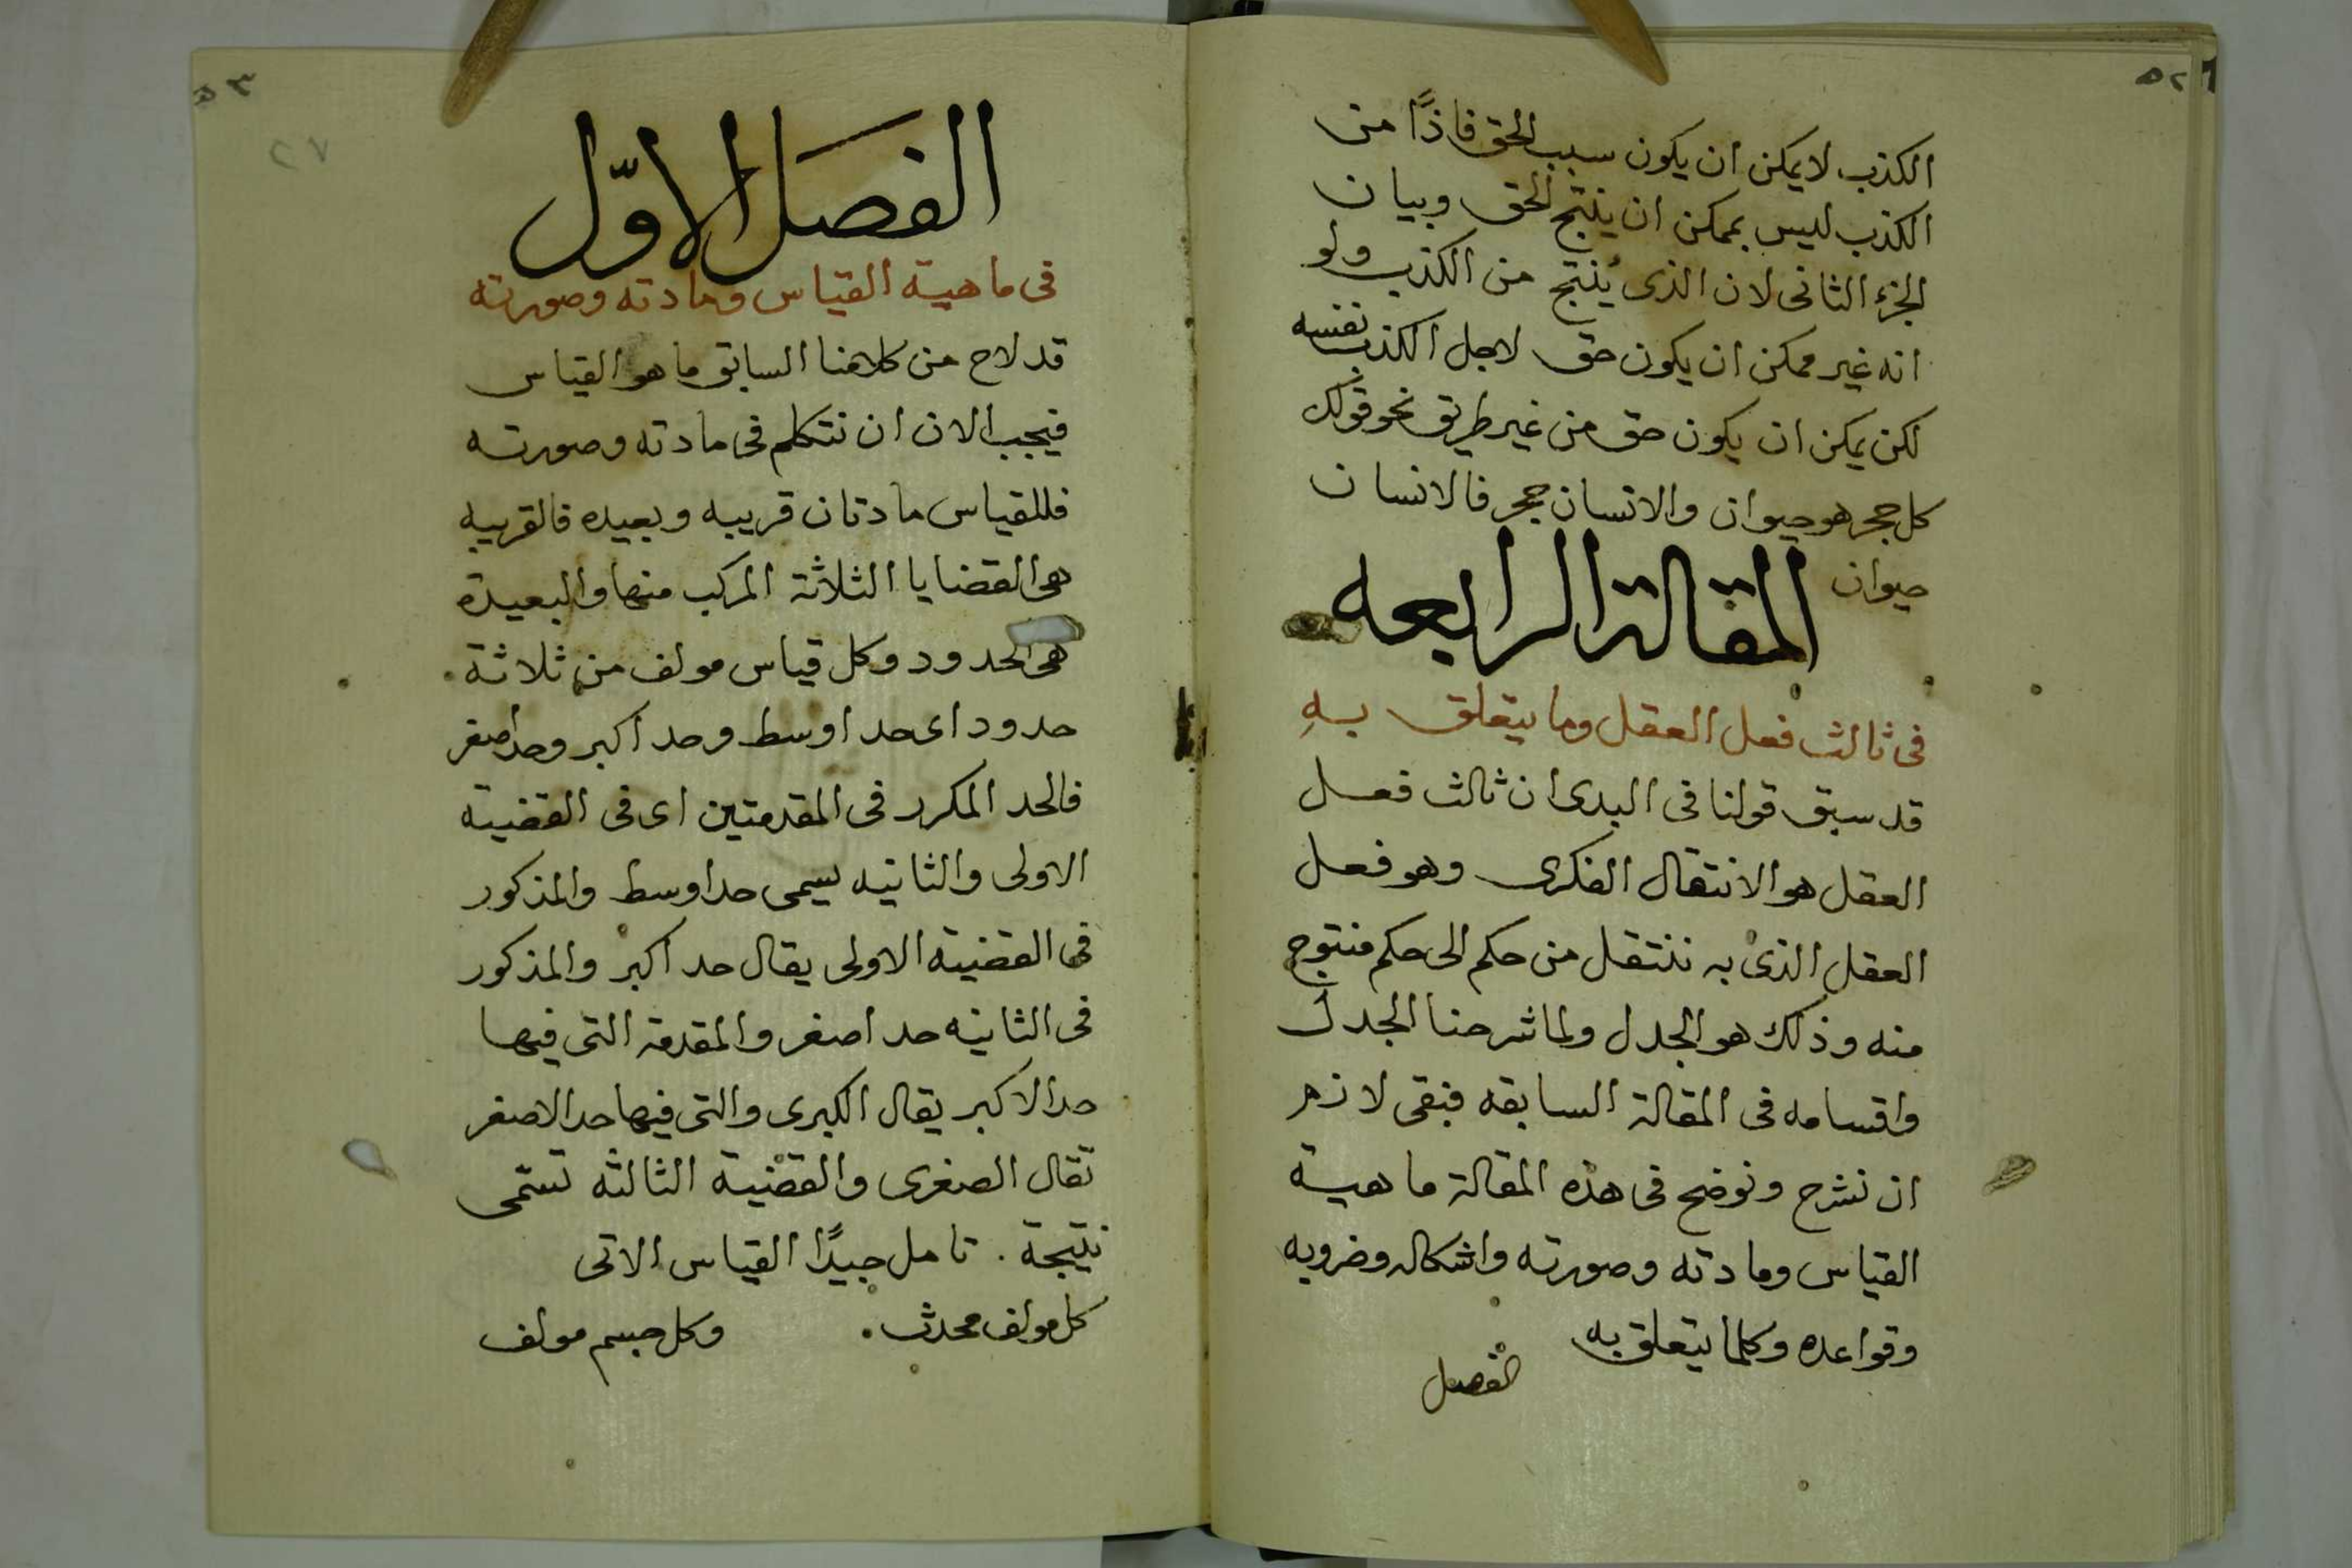 ٥٢
الكذب لا يمكن ان يكون سبب الحق فاذًا من
الكذب ليس بممكن ان ينتج الحق وبيان
الجزء الثانى لان الذى يُنتج من الكذب ولو
انه غير ممكن ان يكون حق لاجل الكذب نفسه
لكن يمكن ان يكون حق من غير طريق نحو قولك
كل حجر هو حيوان والانسان حجر فالانسان
حيوان
المقالة الرابعه
فى ثالث فعل العقل وما يتعلق بهِ
قد سبق قولنا فى البدى ان ثالث فعل
العقل هو الانتقال الفكرى وهو فعل
العقل الذى به ننتقل من حكم الى حكم منتوج
منه وذلك هو الجدل ولما شرحنا الجدل
واقسامه فى المقالة السابقه فبقى لازم
ان نشرح ونوضح فى هذه المقالة ماهية
القياس ومادته وصورته واشكاله وضروبه
وقواعده وكلما يتعلق به
الفصل
٥٣
٢٧
الفصَل الاوّل
فى ماهية القياس ومادته وصورته
قد لاح من كلامنا السابق ما هو القياس
فيجب الان ان نتكلم فى مادته وصورته
فللقياس مادتان قريبه وبعيده فالقريبه
هى القضايا الثلاثة المركب منها والبعيدة
هى الحدود وكل قياس مولف من ثلاثة
حدود اى حد اوسط وحد اكبر وحد اصغر
فالحد المكرر فى المقدمتين اى فى القضية
الاولى والثانيه يسمى حد اوسط والمذكور
فى القضية الاولى يقال حد اكبر والمذكور
فى الثانيه حد اصغر والمقدمة التى فيها
حد الاكبر يقال الكبرى والتى فيها حد الاصغر
تقال الصغرى والقضية الثالثه تسّمى
نتيجة . تامل جيدًا القياس الاتى
كل مولف محدث . وكل جسم مولف